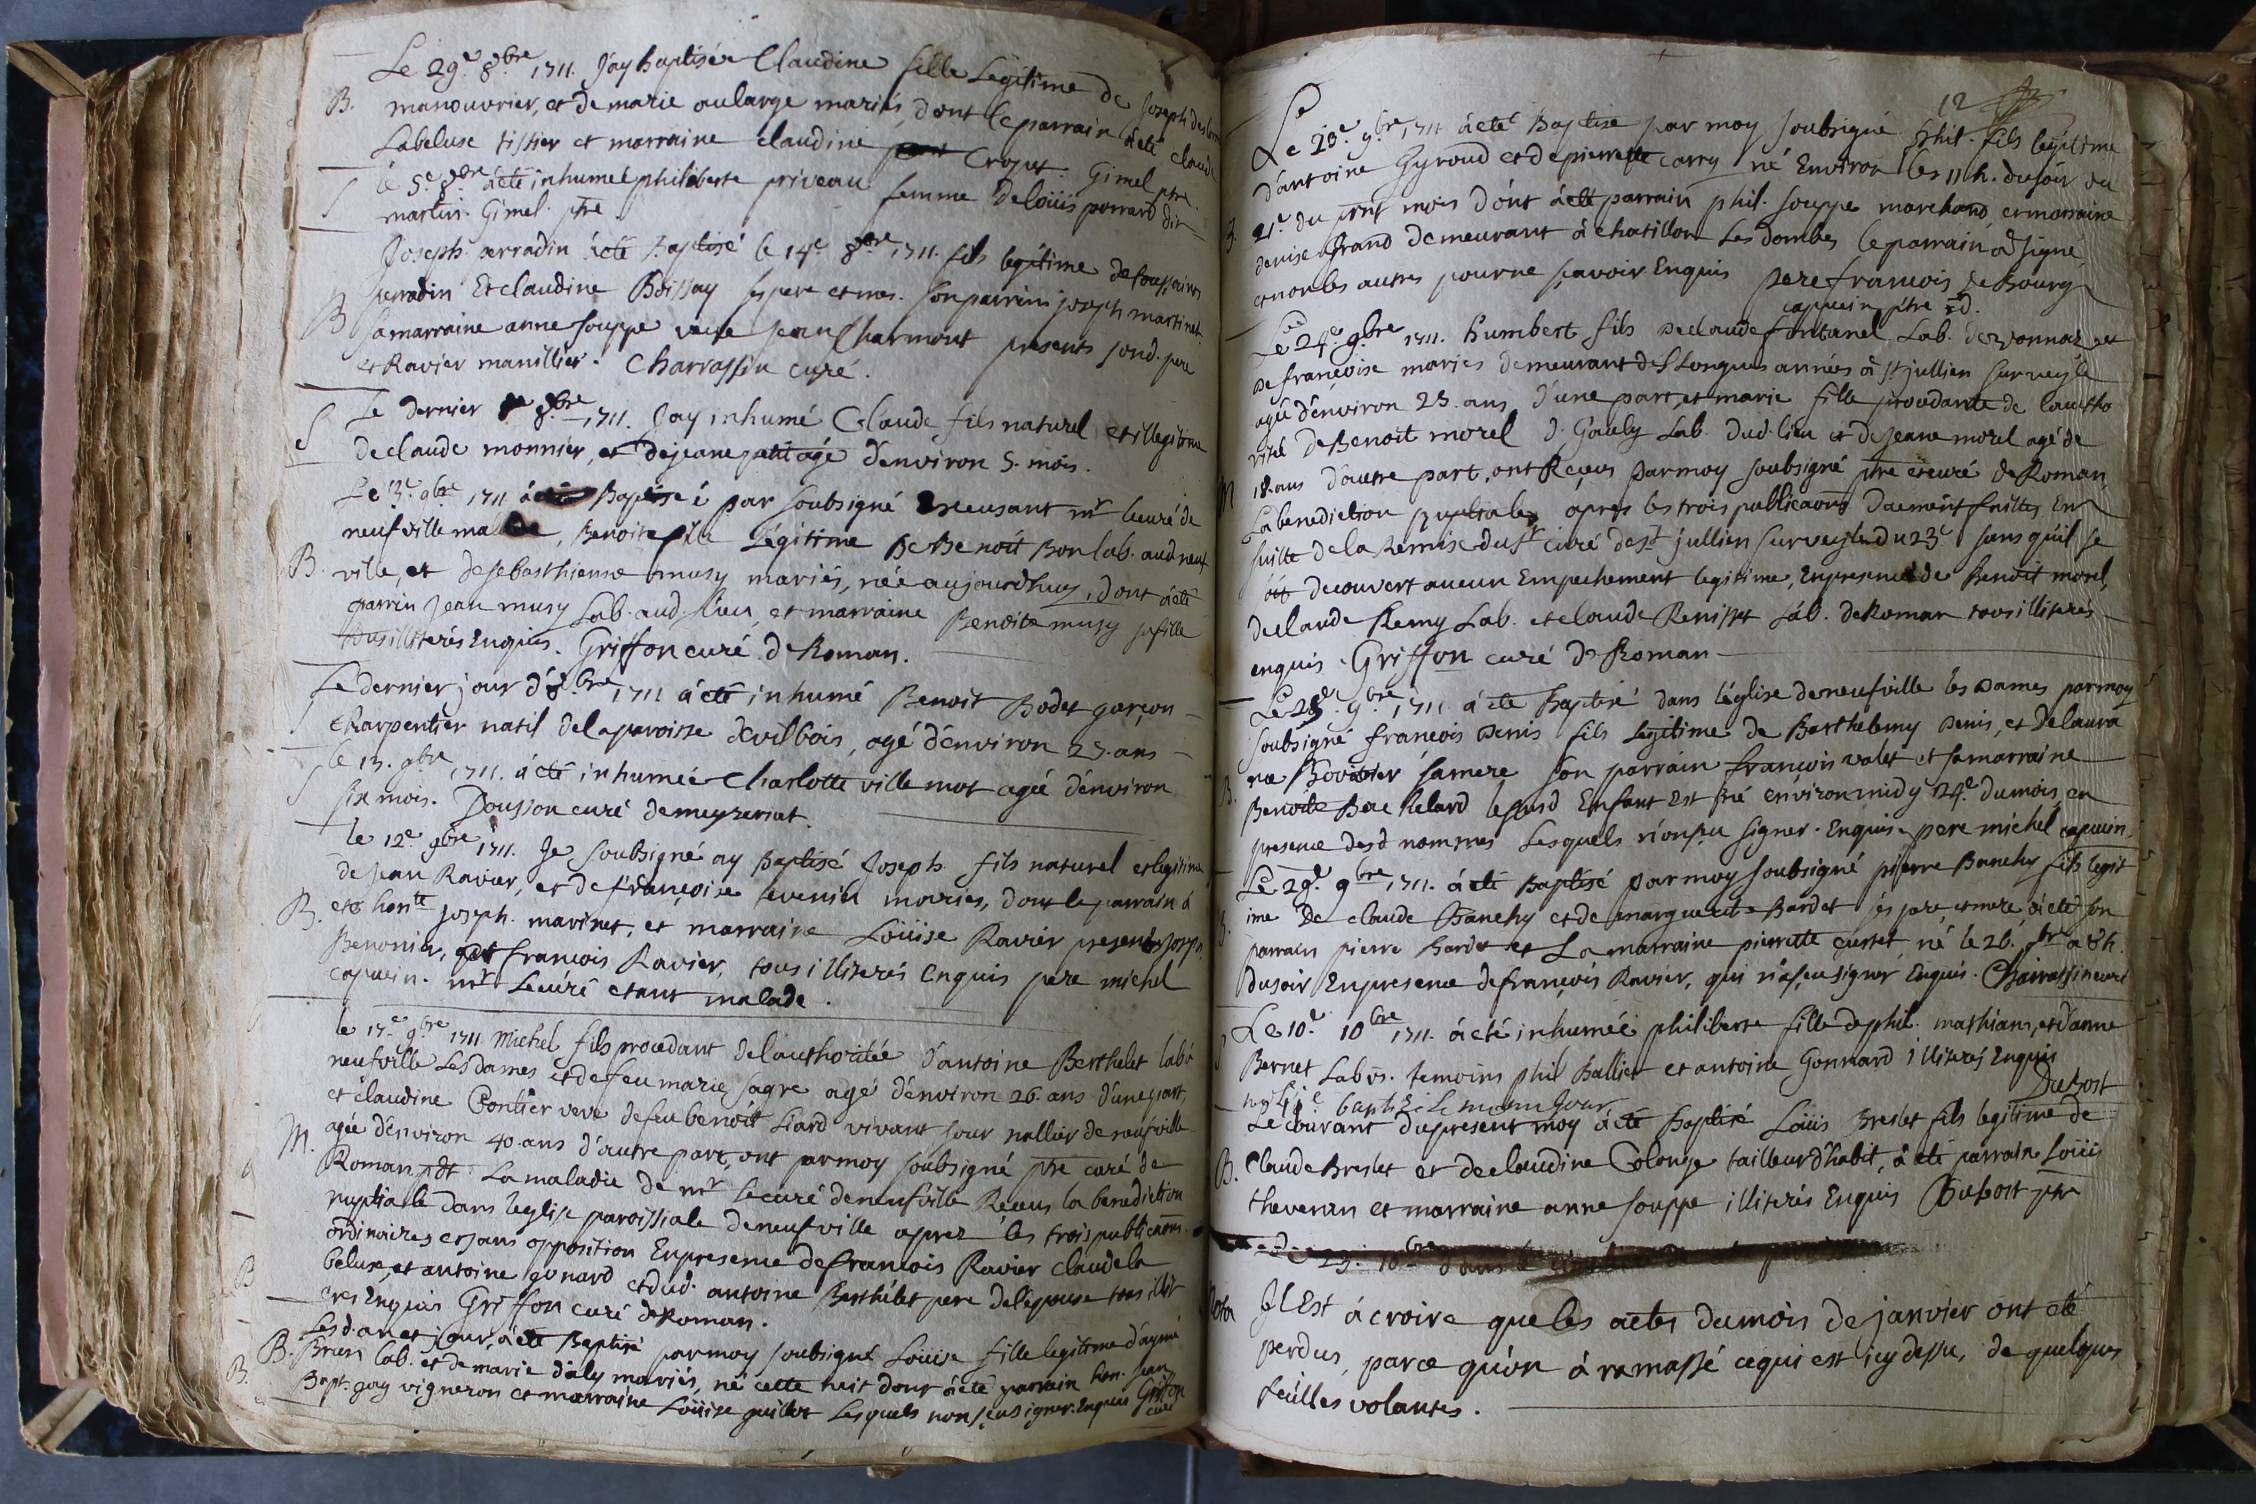 Le 29e 8bre 1711. J'ay Baptisée Claudine fille Legitime de Joseph
B. manouvrier, et de marie aularge mariés, dont le parrain a été claude
Labeluse tissier et marraine claudine Croyet. Gimel ptre.
S le 5e 8bre a été inhumée philiberte priveau femme de loüis perrard dit
martin. Gimel. ptre
Joseph perradin a été Baptisé le 14e 8bre 1711. fils legitime de toussaint
perradin Et claudine Boissay ses pere et mere. son parrain joseph martinet
B sa marraine anne souppe veuve jean Charmont presents sond. pere
et Ravier manillier. Charrassin curé.
S Le dernier 8bre 1711. Jay inhumé Claude fils naturel et illegitime
de claude monnier, et de jeane petit agé d'environ 5. mois.
Le 3e 9bre 1711 a été Baptisé é par soubsigné Excusant mr le curé de
neufville malade, Benoite fille Légitime De Benoit Bon lab. aud. neuf
B. ville, et de sebasthienne musy mariés, née aujourdhuy, dont a été
parrin jean musy Lab. aud. lieu, et marraine Benoite musy sa fille
tous illiterés Enquis. Griffon curé de Roman.
S Le dernier jour d'8bre 1711 a été inhumé Benoit Bodet garçon
charpentier natif de la paroisse de vilbois, agé d'environ 23. ans
le 13. 9bre 1711. a été inhumée Charlotte ville mot agée d'environ
S six mois. Dousson curé de meyzeriat.
le 12e 9bre 1711. Je soubsigné ay Baptisé Joseph. fils naturel et legitime
de jean Ravier, et de françoise mariés, dont le parrain a
B. eté honte joseph. marinet, et marraine Loüise Ravier presents joseph
Benonier, et francois Ravier, tous illiterés Enquis pere michel
capucin. mr Le curé etant malade.
le 17e 9bre 1711 Michel fils procedant de l'authoritée d'antoine Berthelet labr
neufville Les dames et de feu marie sagre agé d'environ 26. ans d'une part,
et claudine Pontier veve de feu benoit Liard vivant
M. agée d'environ 40. ans d'autre part, ont par moy soubsigné ptre curé de
Roman pdt La maladie de mr le curé de neufville Receus la benediction
nuptialle dans leglise paroissiale de neufville aprez les trois publications
ordinaires et sans opposition En presence de francois Ravier claude la
B beluse, et antoine gonard et dud. antoine Berthelet pere de l'epouse tous illit
erés Enquis Griffon curé de Roman.
Les d. an et jour, a été Baptisé par moy soubsigné Loüise fille legitime d'aymé
B. Brun lab. et de marie d'aly mariés, né cette nuit dont a été parrain hon. jean
B. Bapt. gay vigneron et marraine Loüise guillot Lesquels non sceu signer. Enquis Griffon
curé
12
Le 23e 9bre 1711 a été Baptisé par moy soubsigné phil. fils legitime
d'antoine Gyroud et de pierrette carry né Environ les 11 h. du soir du
B. 21e du pnt mois dont a été parrain phil. souppe marchand et marraine
denise grand demeurant a chatillon Les dombes le parrain a signé
et non les autres pour ne sçavoir Enquis pere francois de Bourg
capucin ptre
Le 24e 9bre 1711. humbert fils de claude fontanel Lab. de vonnaz et
De françoise mariés demeurant deslongues années a st jullien sur veyle
agé d'environ 23. ans d'une part, et marie fille procedante de lautho
rité De Benoit morel d. Gauly Lab. dud. lieu et de jeane morel agé de
M 18. ans d'autre part, ont Receus par moy soubsigné ptre et curé de Roman
La benediction nuptiale aprés les trois publicaõns duement faittes En
suitte de la Remise du sr curé de st jullien sur veyle du 23e sans quil se
soit decouvert aucun Empechement legitime, En presence de Benoit morel,
de claude Remy Lab. et claude Renisset Lab. de Roman tous illiterés
enquis. Griffon curé de Roman
Le 25e 9bre 1711 a été Baptisé dans l'église de neufville les Dames par moy
soubsigné françois Denis fils Legitime de Barthelemy Denis, et de laura
B. ne Bovatier sa mere son parrain francois valet et sa marraine
Benoite Bachelard lesusd Enfant Est né environ midy 24e du mois, en
presence desd nommés Lesquels n'on sçu signer. Enquis pere michel capucin.
Le 29e 9bre 1711. a été Baptisé par moy soubsigné pierre Banchy fils legit
B. ime De claude Banchy et de marguerite Bardet ses pere et mere a été son
parrain pierre bardet et La marraine pierrette curtet né le 26. 9bre a 8h.
du soir En presence de françois Ravier, qui n'a sçeu signer, Enquis. Charrassin curé
S Le 10e 10bre 1711. a été inhumée philiberte fille de phil. mathians, et d'anne
Bernet Labrs. temoins phil Ballier et antoine Gonnard illiterés Enquis
Dubost
baptisé le meme Jour
Le courant du present moy a été Baptisé Loüis Breslet fils legitime de
B. Claude Breslet et de claudine Colonge tailleur d'habit, a été parrain Loüis
thevenan et marraine anne souppe illiterés Enquis Dubost ptre
23. 10bre dans le
Nota Il Est a croire que les actes du mois de janvier ont eté
perdus, parce qu'on a ramassé ce qui est icy dessu, de quelques
feuilles volantes.